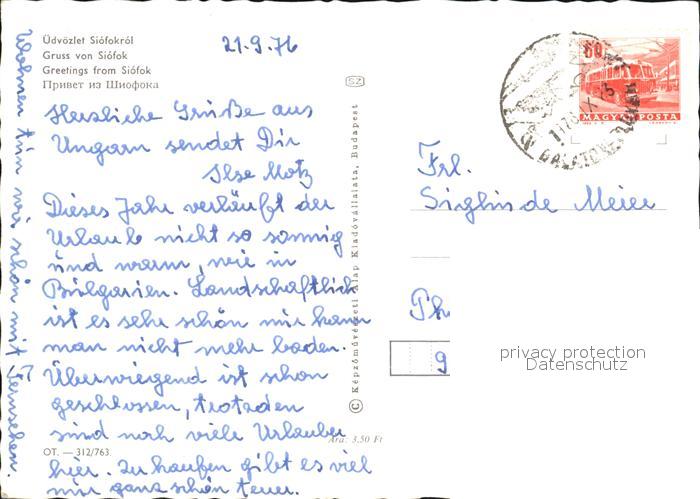 Üdvözlet Siófokról
Gruss von Siófok
Greetings from Siófok
Привет из Шиофока
21.9.76
SZ
Herzliche Grüße aus
Ungarn sendet Dir
Ilse Motz
Dieses Jahr verläuft der
Urlaub nicht so sonnig
und warm, wie in
Bulgarien. Landschaftlich
ist es sehr schön nur kann
man nicht mehr baden.
Überwiegend ist schon
geschlossen, trotzdem
sind noch viele Urlauber
hier. Zu kaufen gibt es viel
nur ganz schön teuer.
Wohnen tun wir schön mit Fernsehen.
Ára: 3,50 Ft
OT. — 312/763
© Képzőművészeti Alap Kiadóvállalata, Budapest
60
MAGYAR POSTA
Frl.
Sieglinde Meier
9
privacy protection
Datenschutz